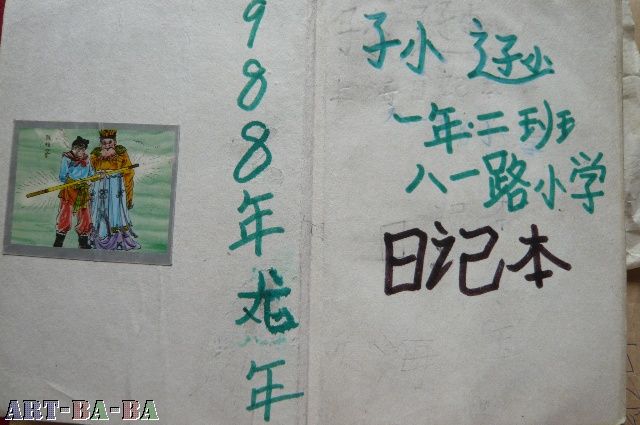 9888年龙年
孙 逊
一年·二班
八一路小学
日记本
ART-BA-BA